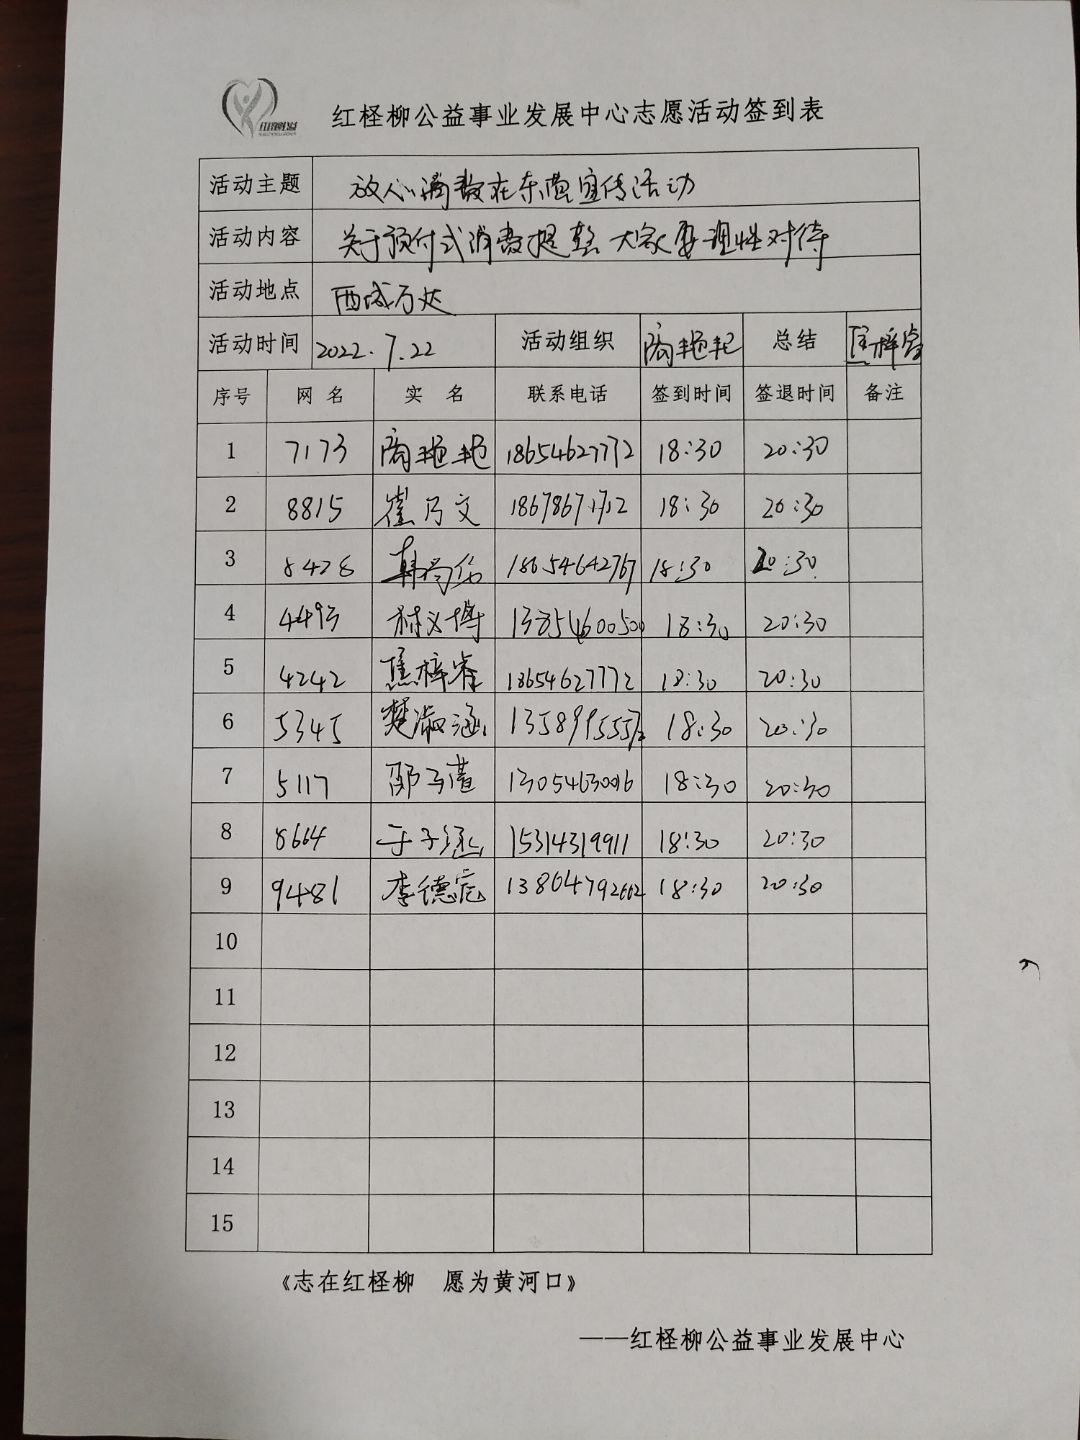 红柽柳公益事业发展中心志愿活动签到表
活动主题 放心消费在东营宣传活动
活动内容 关于预付式消费提醒 大家要理性对待
活动地点 西城万达
活动时间 2022.7.22 活动组织 商艳艳 总结 焦梓睿
序号 网名 实名 联系电话 签到时间 签退时间 备注
1 7173 商艳艳 18654627772 18:30 20:30
2 8815 崔乃文 18678671712 18:30 20:30
3 8428 18654642767 18:30 20:30
4 4493 林义博 13854600500 18:30 20:30
5 4242 焦梓睿 18654627772 18:30 20:30
6 5345 楚淑涵 18:30 20:30
7 5117 18:30 20:30
8 8664 于子涵 15314319911 18:30 20:30
9 9481 18:30 20:30
10
11
12
13
14
15
《志在红柽柳 愿为黄河口》
——红柽柳公益事业发展中心